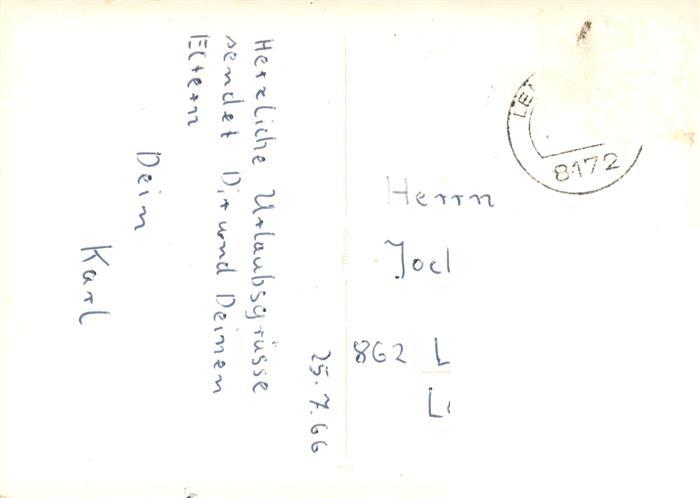 25.7.66
Herzliche Urlaubsgrüsse
sendet Dir und Deinen
Eltern
Dein
Karl
Herrn
862 L
LE
8172